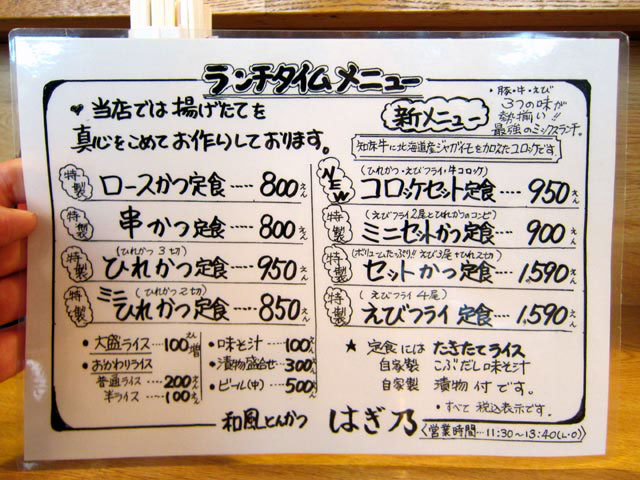 ランチタイムメニュー
♥当店では揚げたてを
真心をこめてお作りしております。
新メニュー
・豚・牛・えび
3つの味が
勢揃い!!
最強のミックスランチ。
知床牛に北海道産ジャガイモを加えたコロッケです。
特製 ロースかつ定食 ---- 800えん
特製 串かつ定食 ---- 800えん
(ひれかつ3切)
特製 ひれかつ定食 --- 950えん
(ひれかつ2切)
特製 ミニひれかつ定食 --- 850えん
(ひれかつ・えびフライ・牛コロッケ)
NEW コロッケセット定食 --- 950えん
(えびフライ2尾とひれかつのコンビ)
特製 ミニセットかつ定食 --- 900えん
(ボリュームたっぷり!! えび3尾+ひれ2切)
特製 セットかつ定食 ---- 1,590えん
(えびフライ4尾)
特製 えびフライ定食 ---- 1,590えん
・大盛ライス ---- 100えん増
・おかわりライス
普通ライス --- 200えん
半ライス --- 100えん
・味そ汁 ---- 100えん
・漬物盛合せ --- 300えん
・ビール(中) --- 500えん
★ 定食には たきたてライス
自家製 こぶだし味そ汁
自家製 漬物付です。
・すべて税込表示です。
和風とんかつ はぎ乃
〈営業時間…11:30〜13:40(L・O)〉